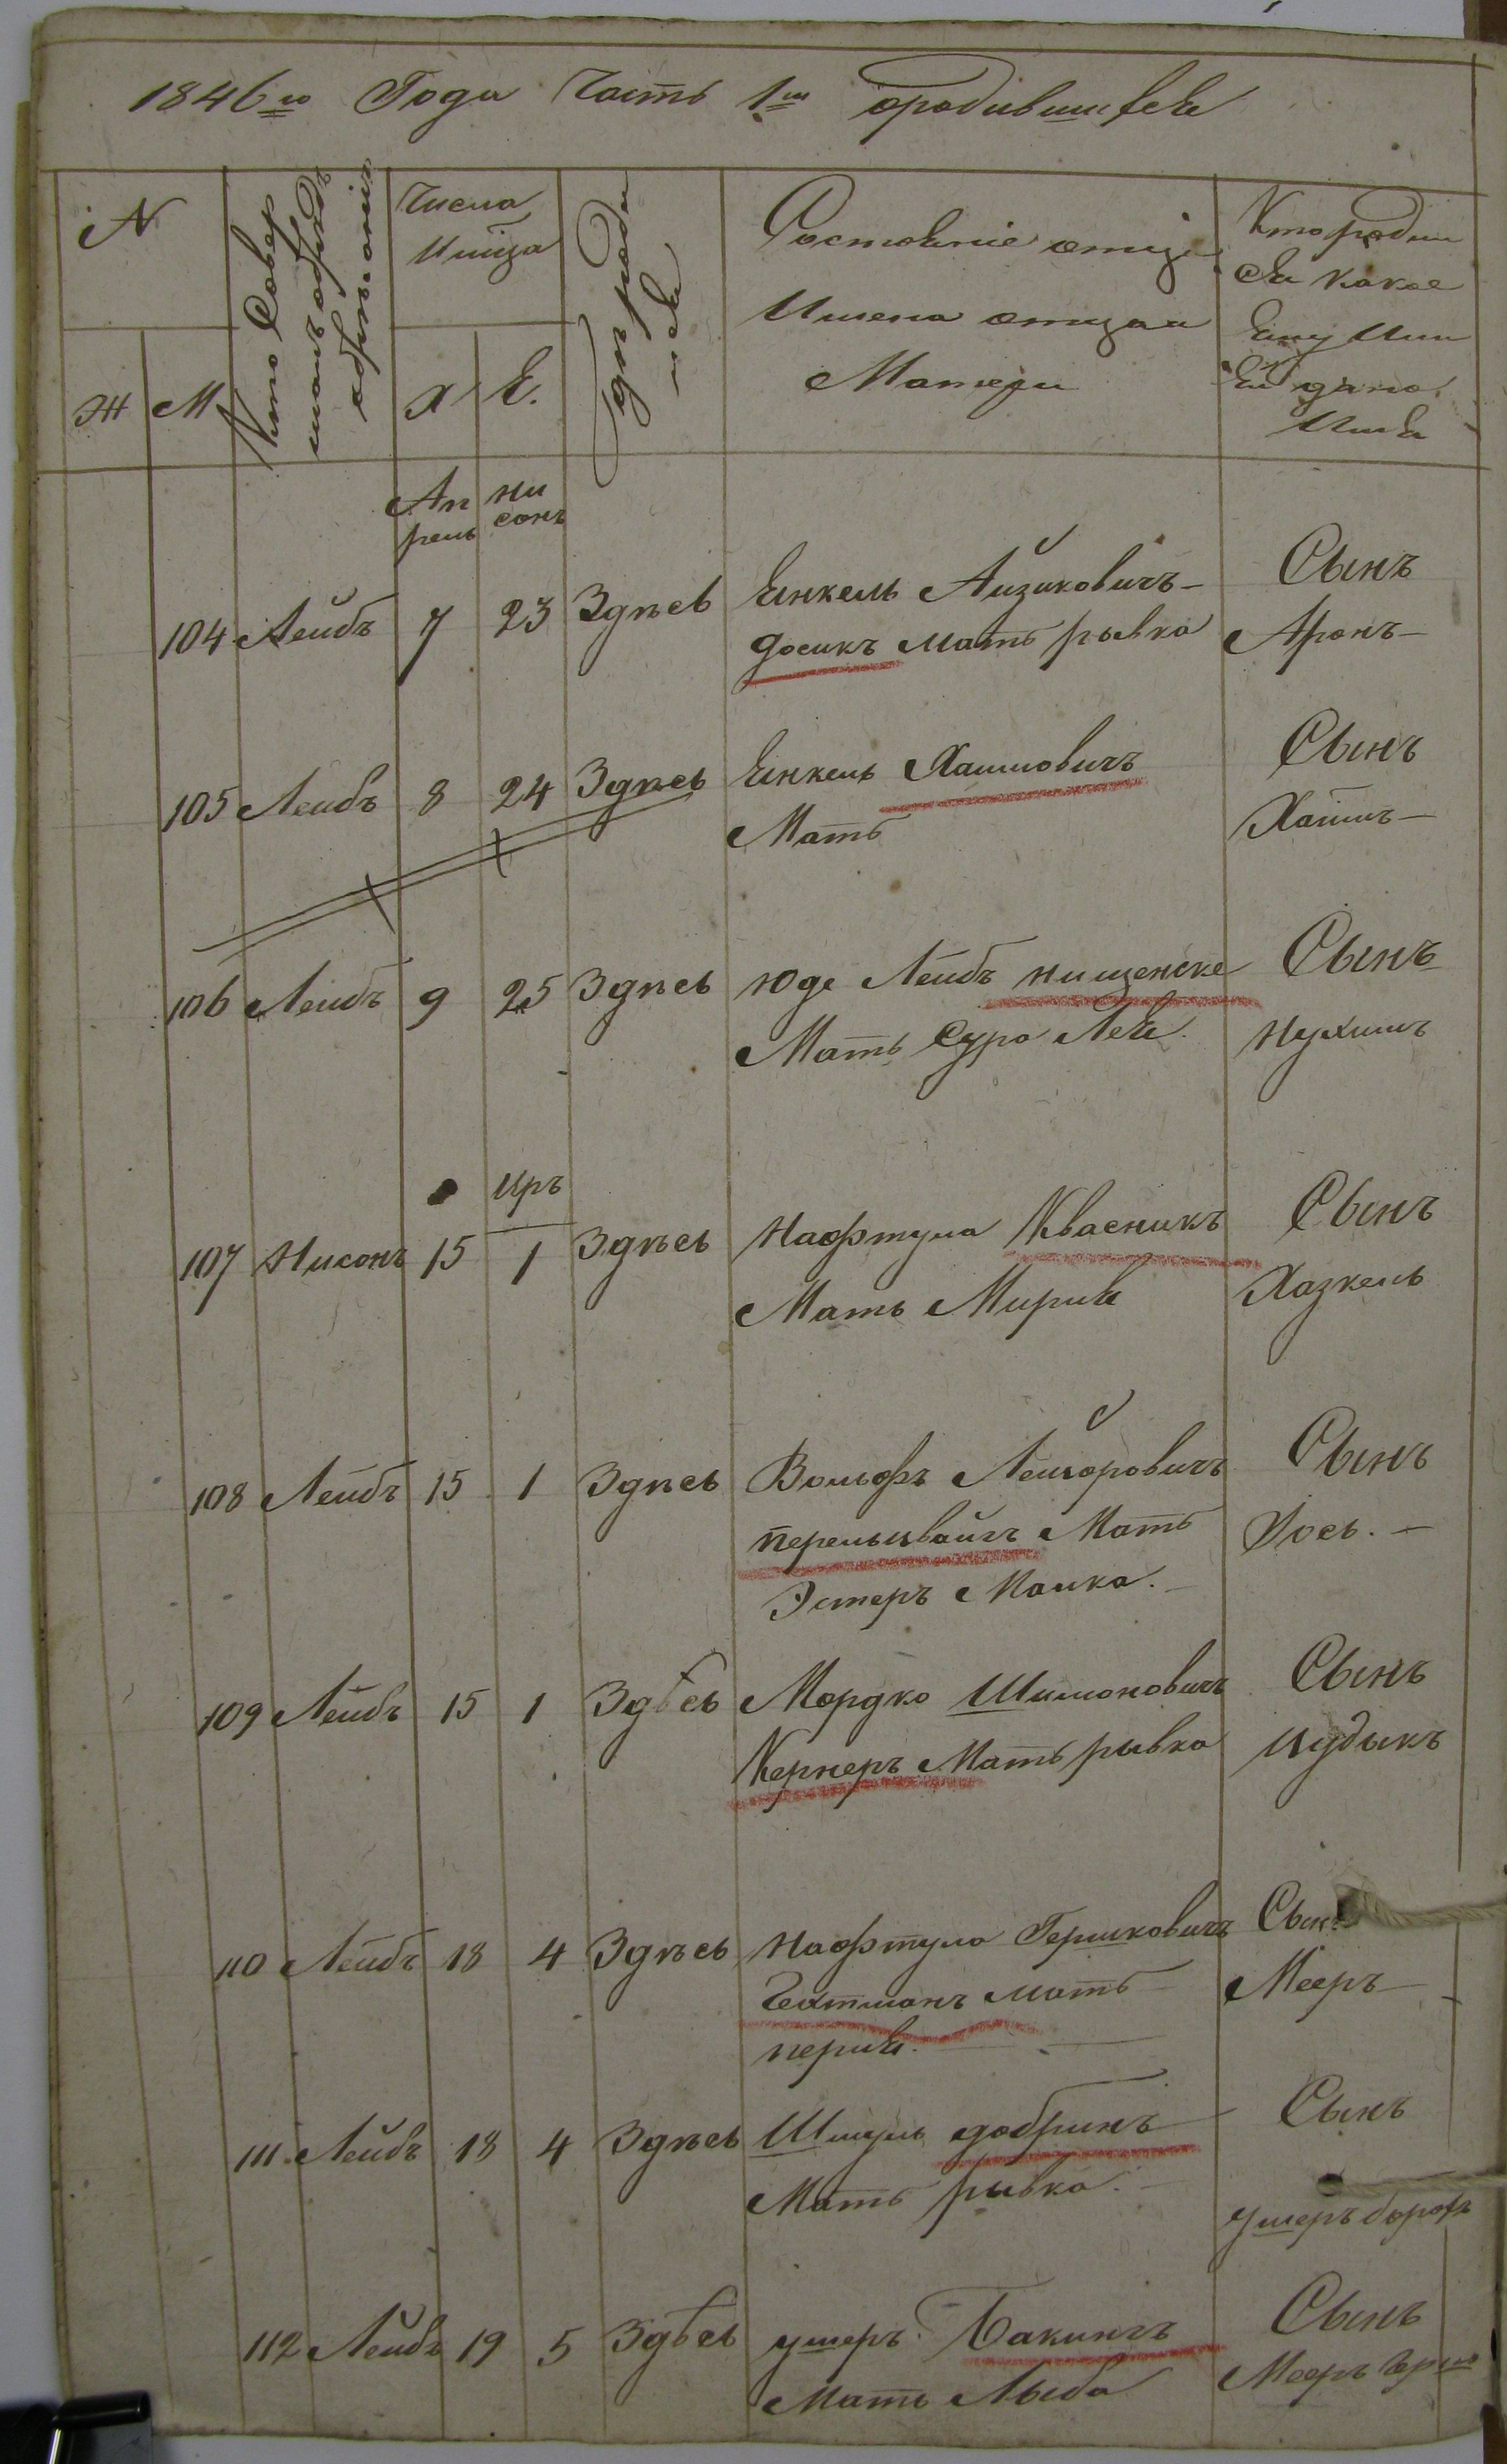 1846го Года Часть 1ая ородившихся
N
Ж М
Кто Совер
шалъ обрядъ
обрезанія
Числа
Мѣсяца
Х Е.
Где роди
лся
Состояніе отца
Имена отца и
Матери
Кто родил
ся какое
Ему или
Ей дано
Имя
Ап ни
рель сонъ
104 Лейбъ 7 23 Здѣсь Янкель Айзиковичъ Сынъ
досикъ мать рывка Аронъ
105 Лейбъ 8 24 Здѣсь Янкель Хаимовичъ Сынъ
Мать Хаимъ
106 Лейбъ 9 25 Здѣсь Юде Лейбъ нищенске Сынъ
Мать Сура Лея. Нухимъ
Иръ
107 Нисонъ 15 1 Здѣсь Нафтула Квасникъ Сынъ
Мать Мирия Хазкель
108 Лейбъ 15 1 Здѣсь Вольфъ Лейзоровичъ Сынъ
перельцвайгъ Мать Іось.
Эстеръ Малка.
109 Лейбъ 15 1 Здѣсь Мордко Шимоновичъ Сынъ
Кернеръ Мать рывка Иудыкъ
110 Лейбъ 18 4 Здѣсь Нафтула Гершковичъ Сынъ
Гехтманъ мать Мееръ
перия.
111. Лейбъ 18 4 Здѣсь Шмуль добринъ Сынъ
Мать рывка. Ушеръ борохъ
112 Лейбъ 19 5 Здѣсь ушеръ Бакингъ Сынъ
Мать Лыба Мееръ Герш